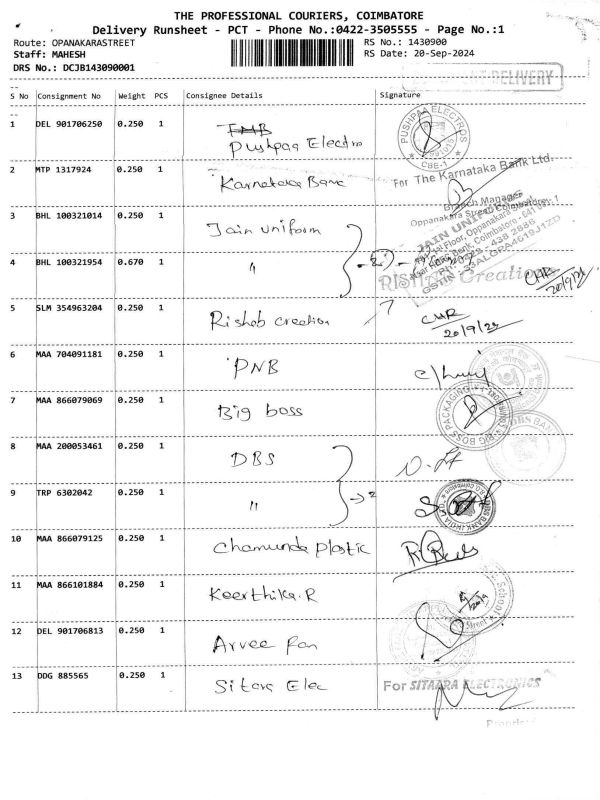 THE PROFESSIONAL COURIERS, COIMBATORE
Delivery Runsheet - PCT - Phone No.:0422-3505555 - Page No.:1
Route: OPANAKARASTREET RS No.: 1430900
Staff: MAHESH RS Date: 20-Sep-2024
DRS No.: DCJB143090001
DELIVERY
S No Consignment No Weight PCS Consignee Details Signature
1 DEL 901706250 0.250 1 Pushpaa Electro
PUSHPAA ELECTROS
CBE-1
2 MTP 1317924 0.250 1 Karnataka Bank
For The Karnataka Bank Ltd.
Branch Manager
Oppanakara Street Coimbatore-1
3 BHL 100321014 0.250 1 Jain uniform
JAIN UNIFORM
4 BHL 100321954 0.670 1 "
RISHAB Creation
20/9/24
5 SLM 354963204 0.250 1 Rishab creation
20/9/24
6 MAA 704091181 0.250 1 PNB
7 MAA 866079069 0.250 1 Big boss
BIG BOSS PACKAGING
DBS BANK
8 MAA 200053461 0.250 1 DBS
9 TRP 6302042 0.250 1 " 2
10 MAA 866079125 0.250 1 Chamunda plastic
11 MAA 866101884 0.250 1 Keerthika.R
School
Street
12 DEL 901706813 0.250 1 Arvee fan
13 DDG 885565 0.250 1 Sitara Elec
For SITAARA ELECTRONICS